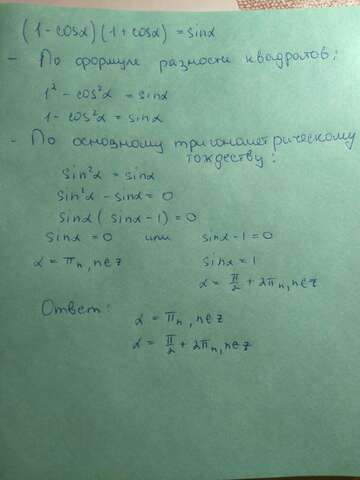 (1-cosα)(1+cosα)=sinα
- По формуле разности квадратов:
1²-cos²α=sinα
1-cos²α=sinα
- По основному тригонометрическому
тождеству:
sin²α=sinα
sin²α-sinα=0
sinα(sinα-1)=0
sinα=0 или sinα-1=0
α=πn, n∈z sinα=1
α=π/2+2πn, n∈z
Ответ:
α=πn, n∈z
α=π/2+2πn, n∈z